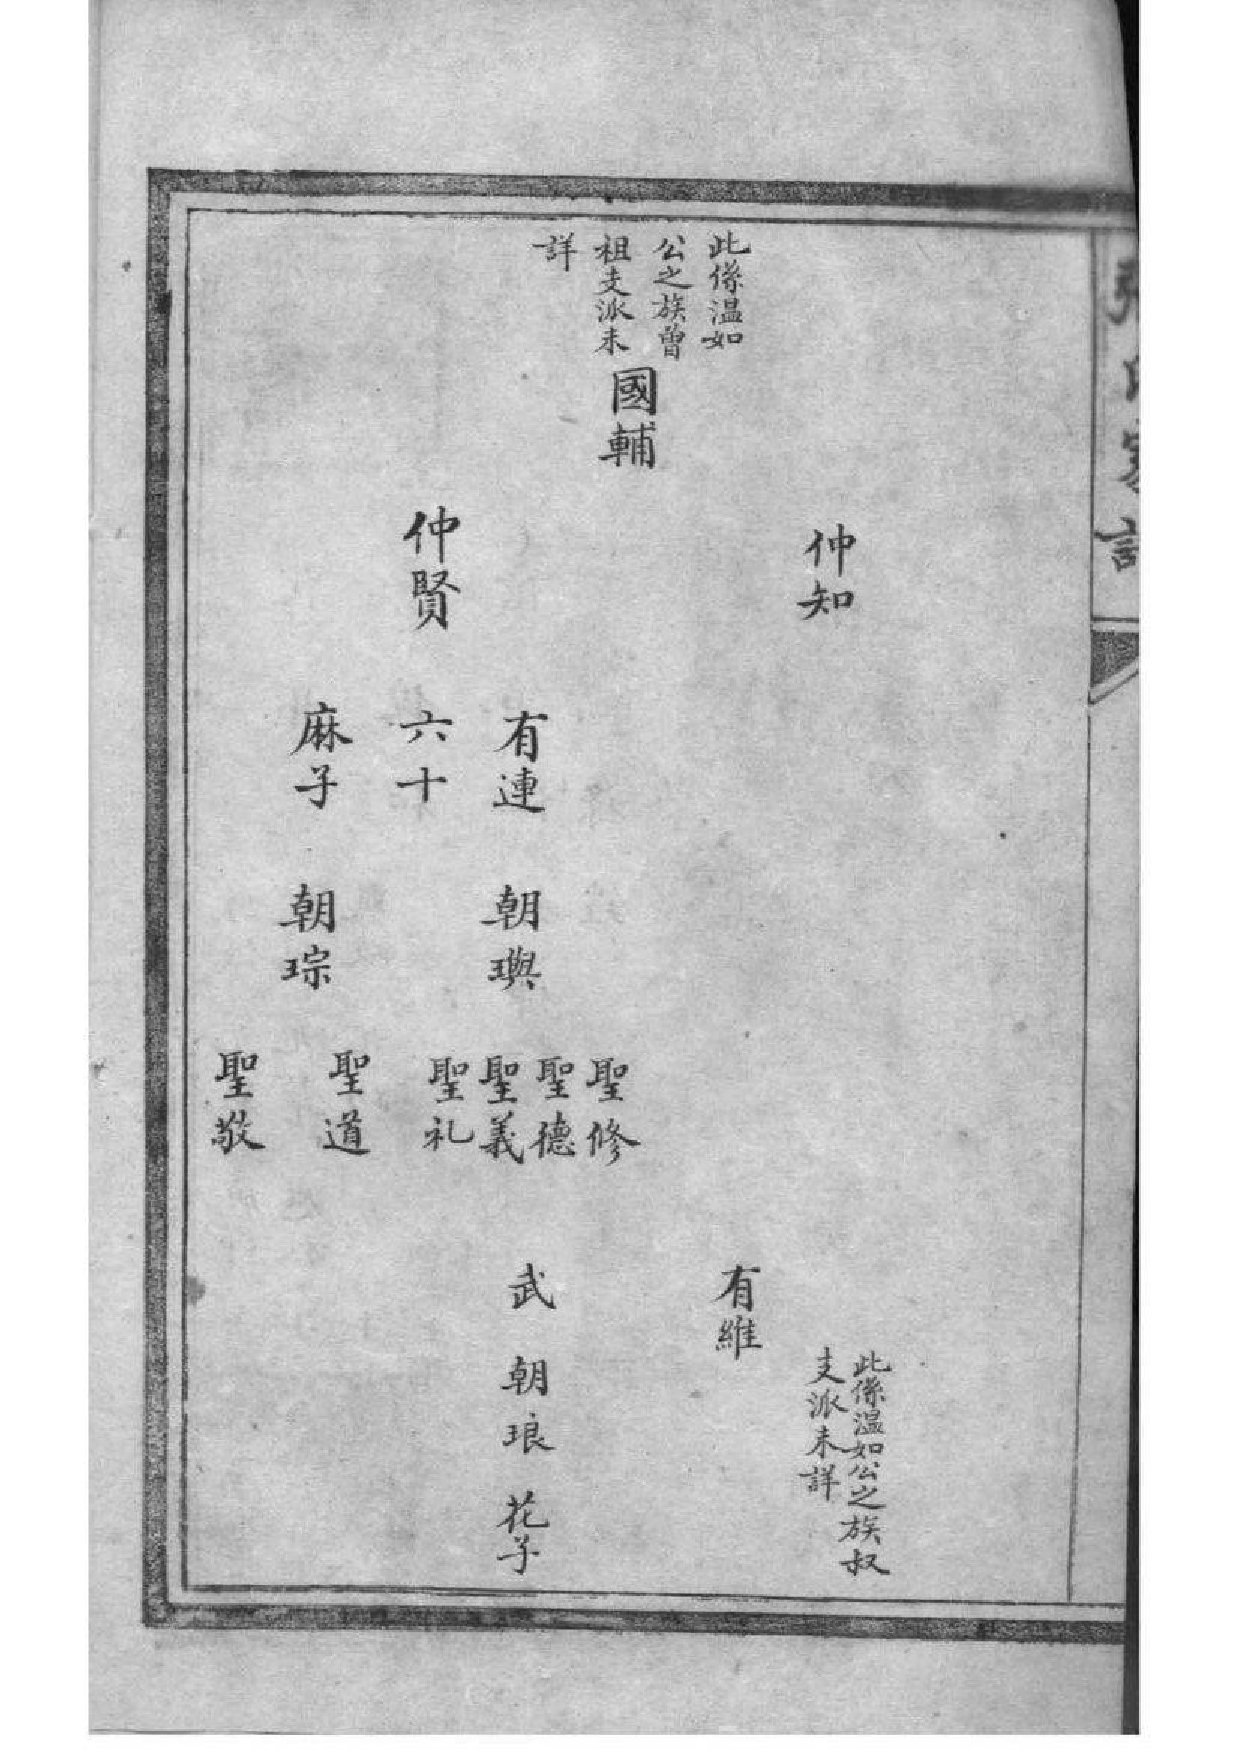 此係温如
公之族曾
祖支派未
詳
國輔
仲知
仲賢
有連
六十
麻子
朝璵
朝琮
聖修
聖德
聖義
聖礼
聖道
聖敬
此係温如公之族叔
支派未詳
有維
武
朝琅
花子